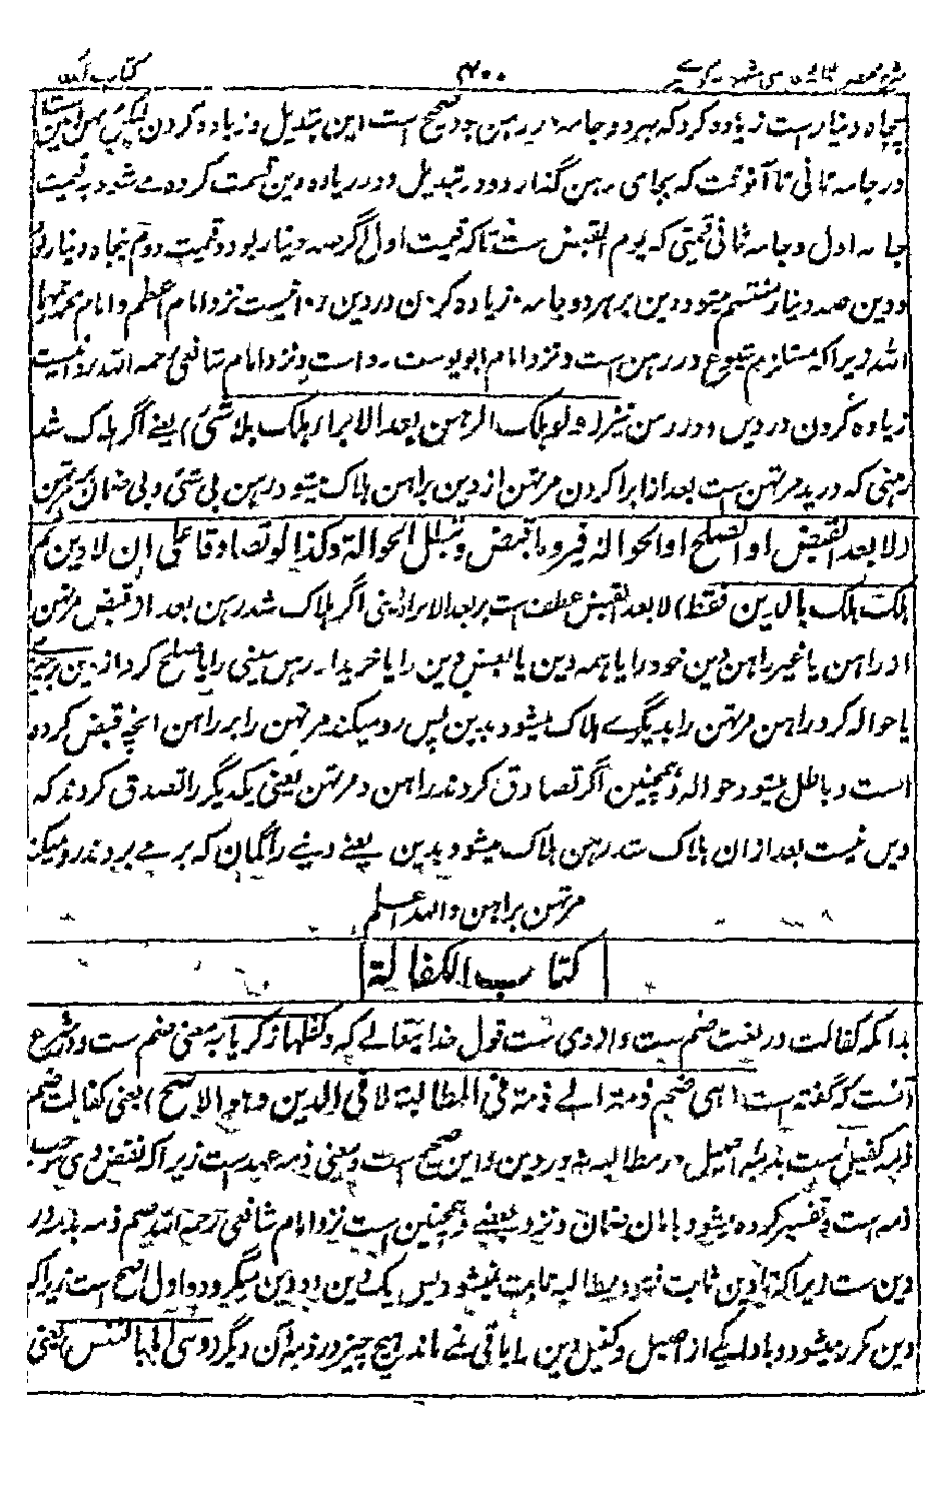 ۴۰۰
پنجاه دینارست زیاده کرد که بهر دو جامه در رهن بود صحیح است این تبدیل و زیاده کردن لیکن رهن
در جامه ثانی تا آنوقت که بجای رهن گذارد و در تبدیل و در زیاده دین قسمت کرده مے شود بقیمت
جامه اول و جامه ثانی قیمتی که یوم القبض ست تا که قیمت اول اگر صد دینار بود و قیمت دوم پنجاه دینار بود
و دین صد دینار منقسم میشود دین بر هر دو جامه زیاده کردن در دین روا نیست نزد امام اعظم و امام محمد رحمهما
الله زیرا که مستلزم شیوع در رهن ست و نزد امام ابو یوسف روا ست و نزد امام شافعی رحمه الله روا نیست
زیاده کردن در دین و در رهن نیز (ولو هلک الرهن بعد الابراء هلک بلا شئ) یعنے اگر هلاک شد
رهنی که در ید مرتهن ست بعد از ابرا کردن مرتهن از دین براهن هلاک میشود رهن بی شئ و بی ضمان بر مرتهن
(لا بعد القبض او الصلح او الحوالة فیرد ما قبض و تبطل الحوالة و کذا لو تصادقا علی ان لا دین ثم
هلک هلک بالدین فقط) لا بعد القبض عطف ست بر بعد الابراء یعنی اگر هلاک شد رهن بعد از قبض مرتهن
از راهن یا غیر راهن دین خود را یا همه دین یا بعض دین را یا خرید از رهن عینی را یا صلح کرد از دین بر چیزے
یا حواله کرد راهن مرتهن را بدیگرے هلاک میشود بدین پس رد میکند مرتهن را بر راهن انچه قبض کرده
است و باطل میشود حواله و همچنین اگر تصادق کردند راهن و مرتهن یعنی یکدیگر را تصدق کردند که
دین نیست بعد ازان هلاک شد رهن هلاک میشود بدین یعنے دینے را گمان که برے بردند رد میکند
مرتهن براهن والله اعلم
کتاب الکفالة
بدانکه کفالت در لغت ضم ست و ازوی ست قول خدا یتعالے که وکفلها زکریا به معنی ضم ست و در شرع
آنست که گفته است (هی ضم ذمة الے ذمة فی المطالبة لا فی الدین و هو الاصح) یعنی کفالت ضم
ذمه کفیل ست بذمه اصیل در مطالبه نه در دین و این صحیح است و معنی ذمه عهد ست زیرا که نقض وی موجب
ذمه است و تفسیر کرده میشود بامان و ضمان و نزد بعضے و همچنین است نزد امام شافعی رحمه الله ضم ذمه بذمه در
دین ست زیرا که تا دین ثابت نشود مطالبه ثابت نمیشود پس یک دین دو دین میگردد و اول اصح ست زیرا که
دین مکرر میشود و بادا یکے از اصیل و کفیل دین را باقی نمے ماند هیچ چیز در ذمه آن دیگر و هی اما بالنفس یعنی